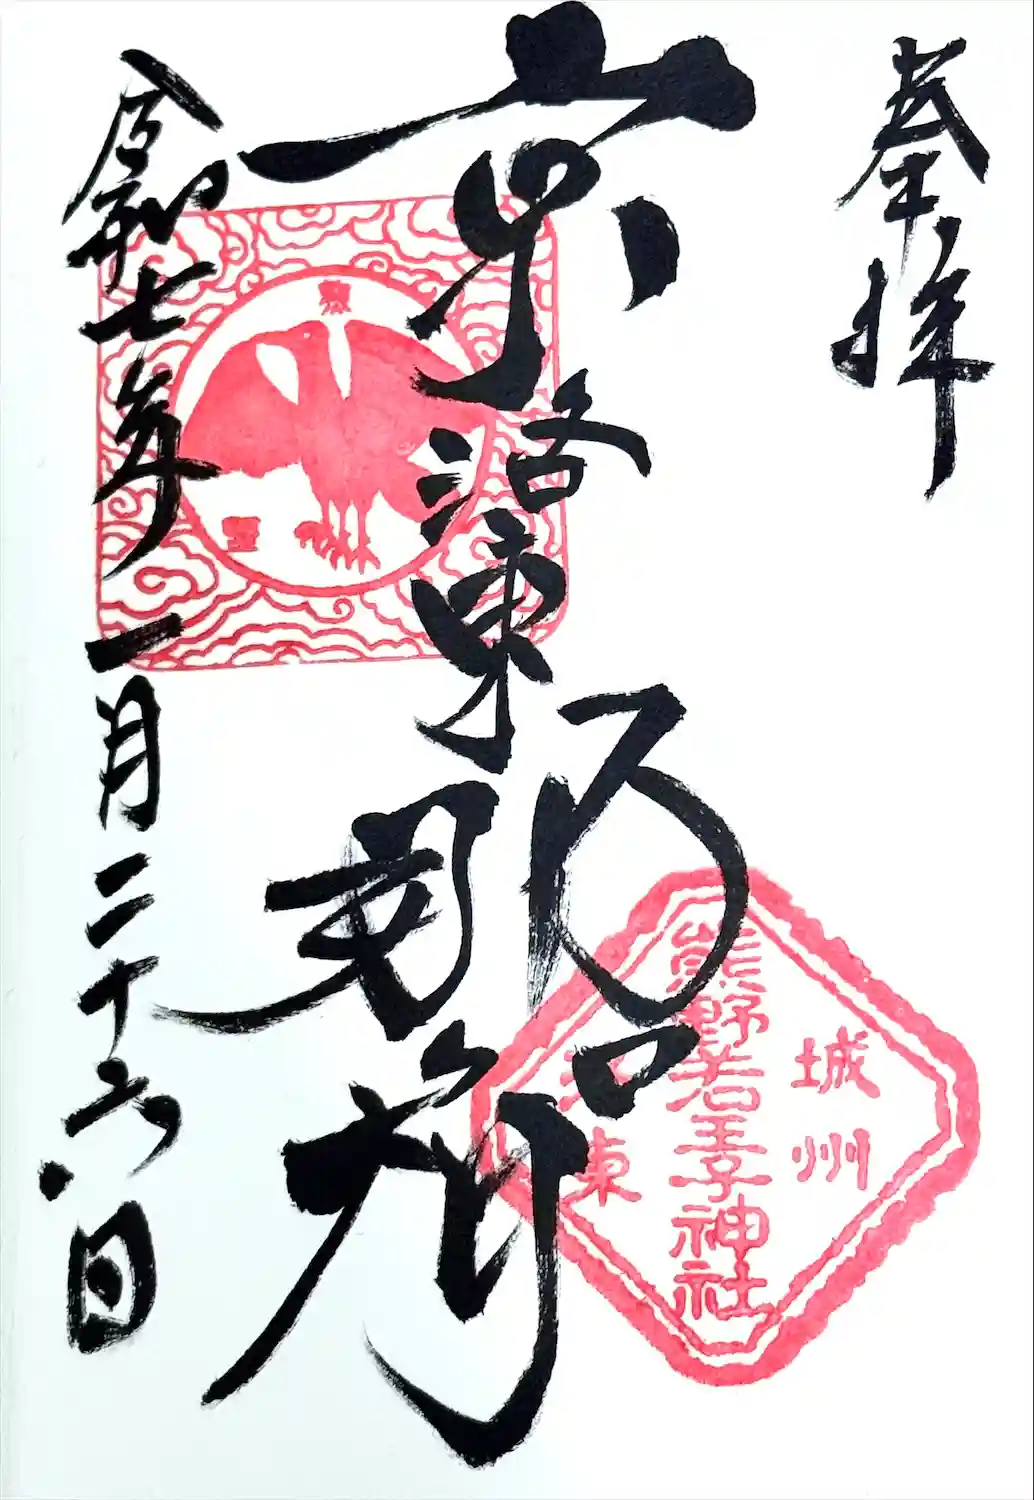 奉拝
京洛東那智
令和七年一月二十六日
城州
熊野若王子神社
洛東